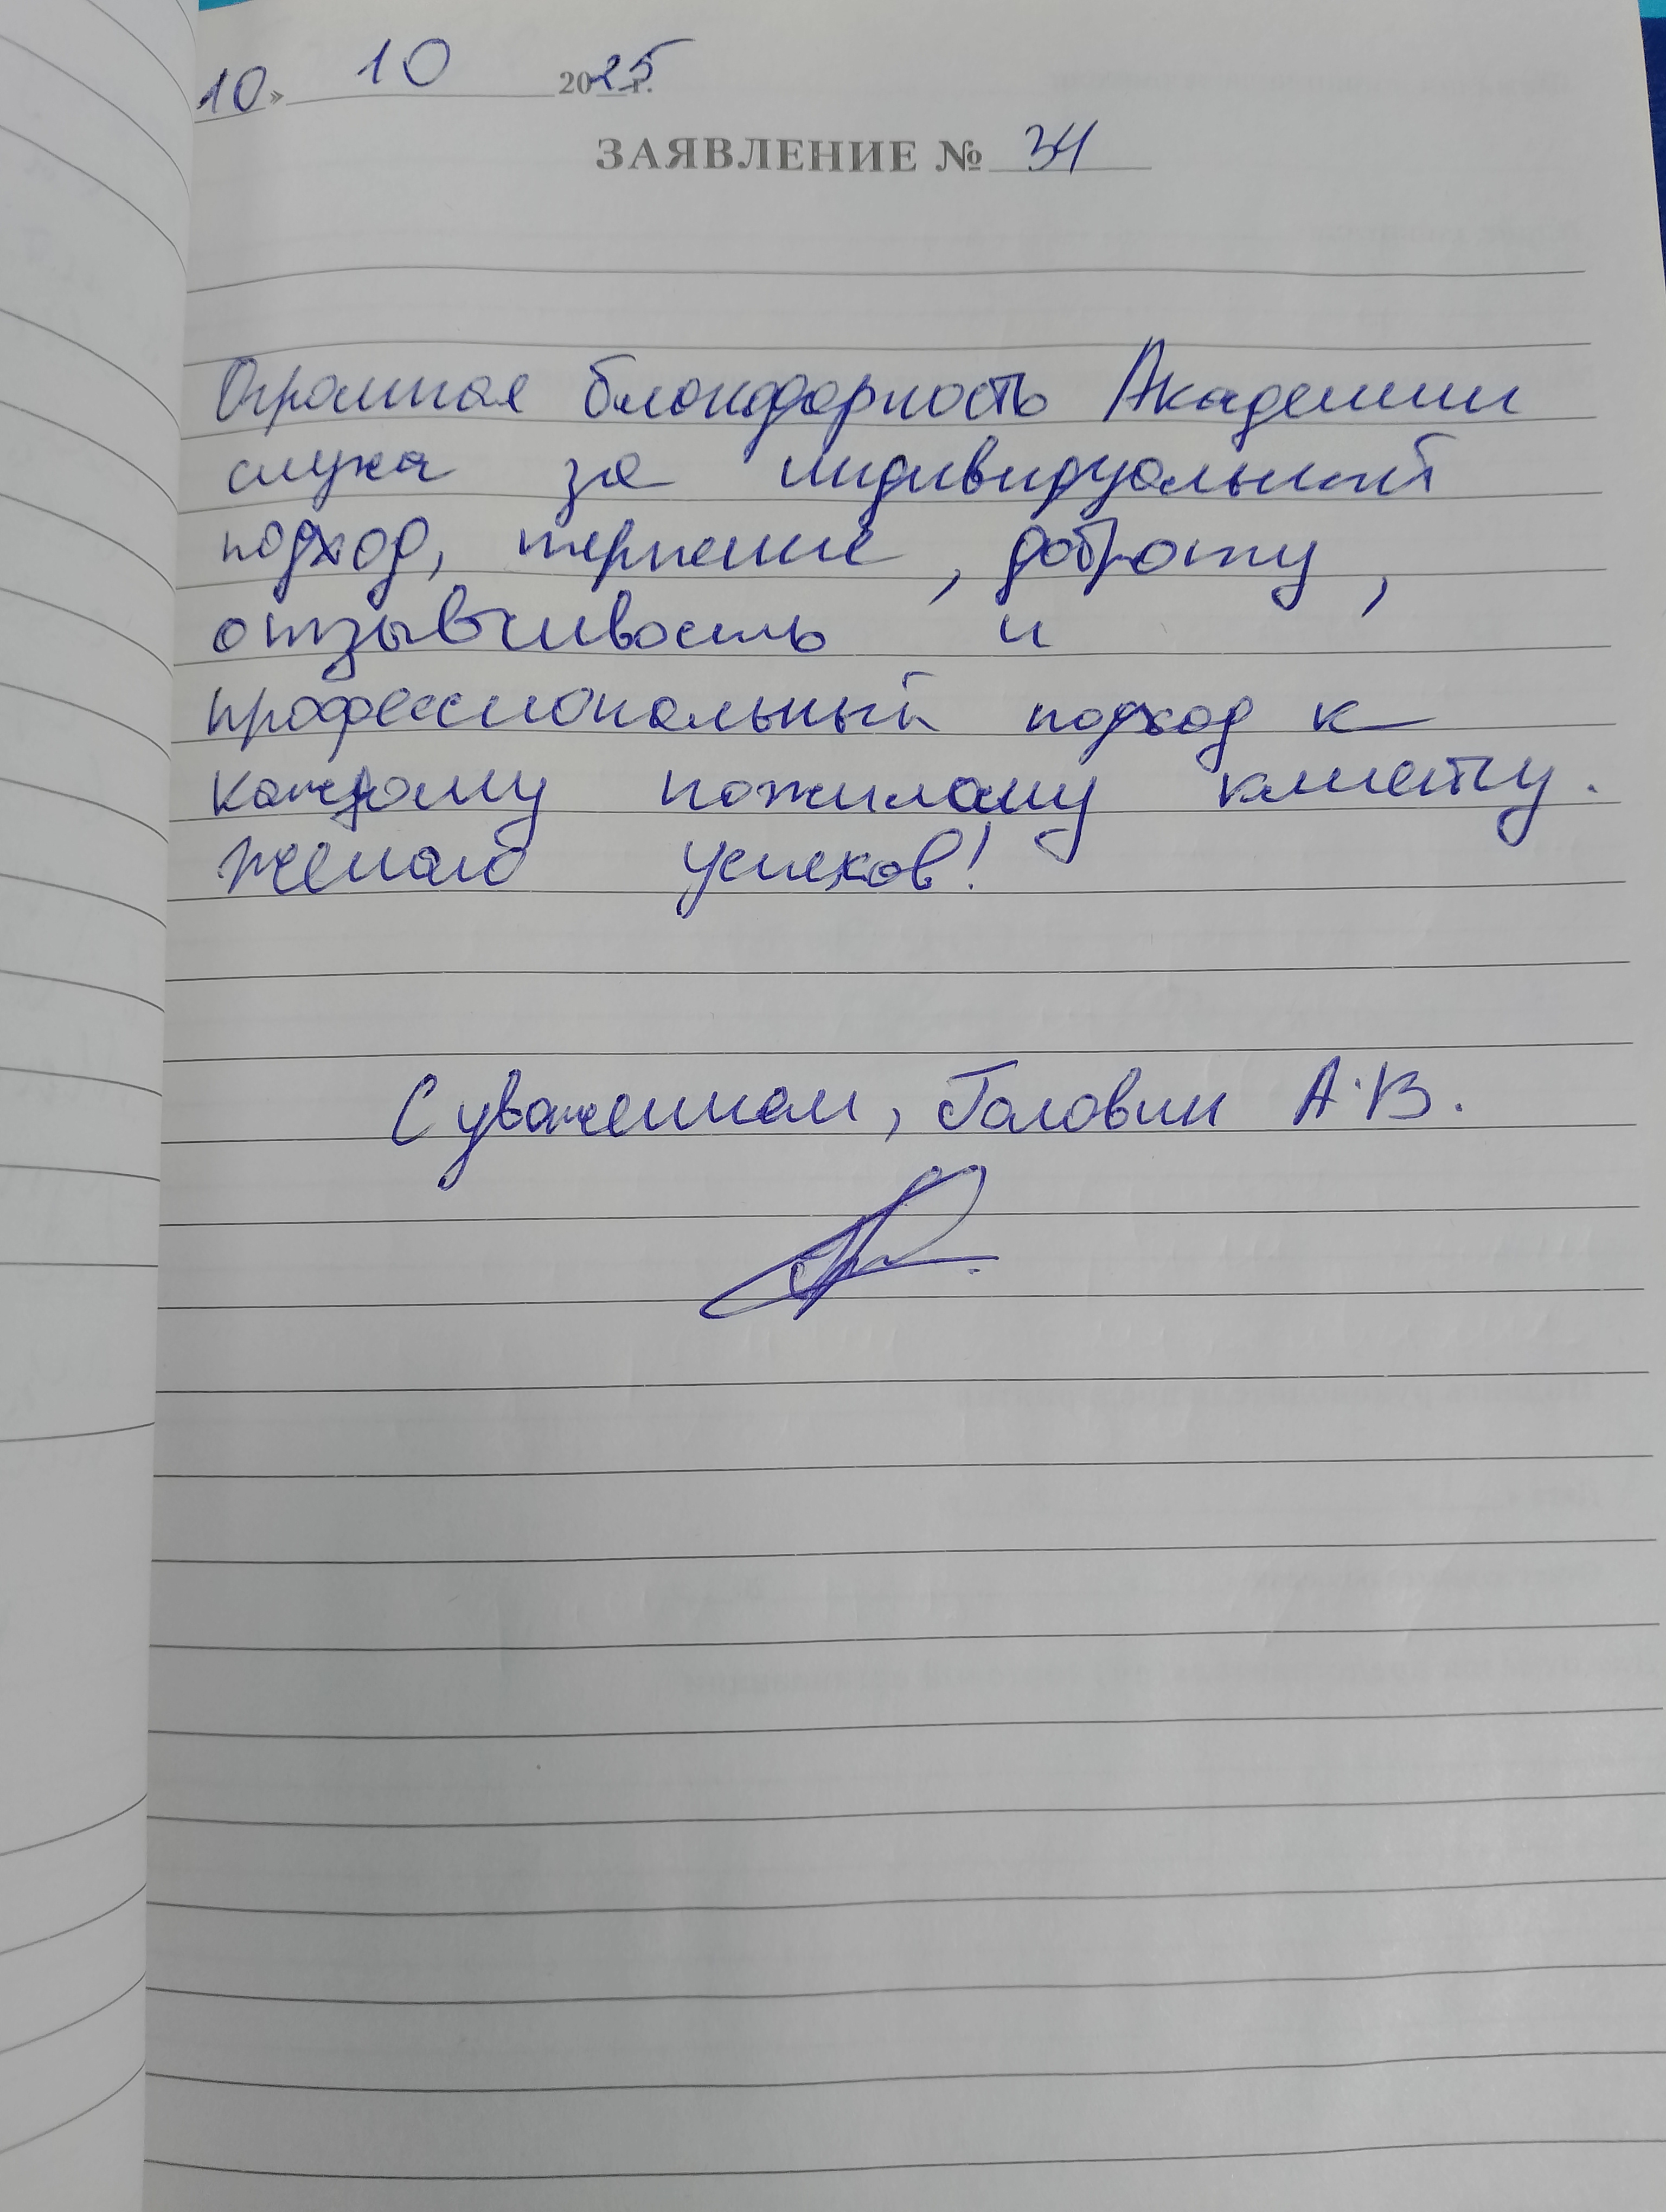 10» 10 2025 г.
ЗАЯВЛЕНИЕ № 34
Огромная благодарность Академии
слуха за индивидуальный
подход, терпение, доброту,
отзывчивость и
профессиональный подход к
каждому пожилому клиенту.
Желаю успехов!
С уважением, Головин А.В.